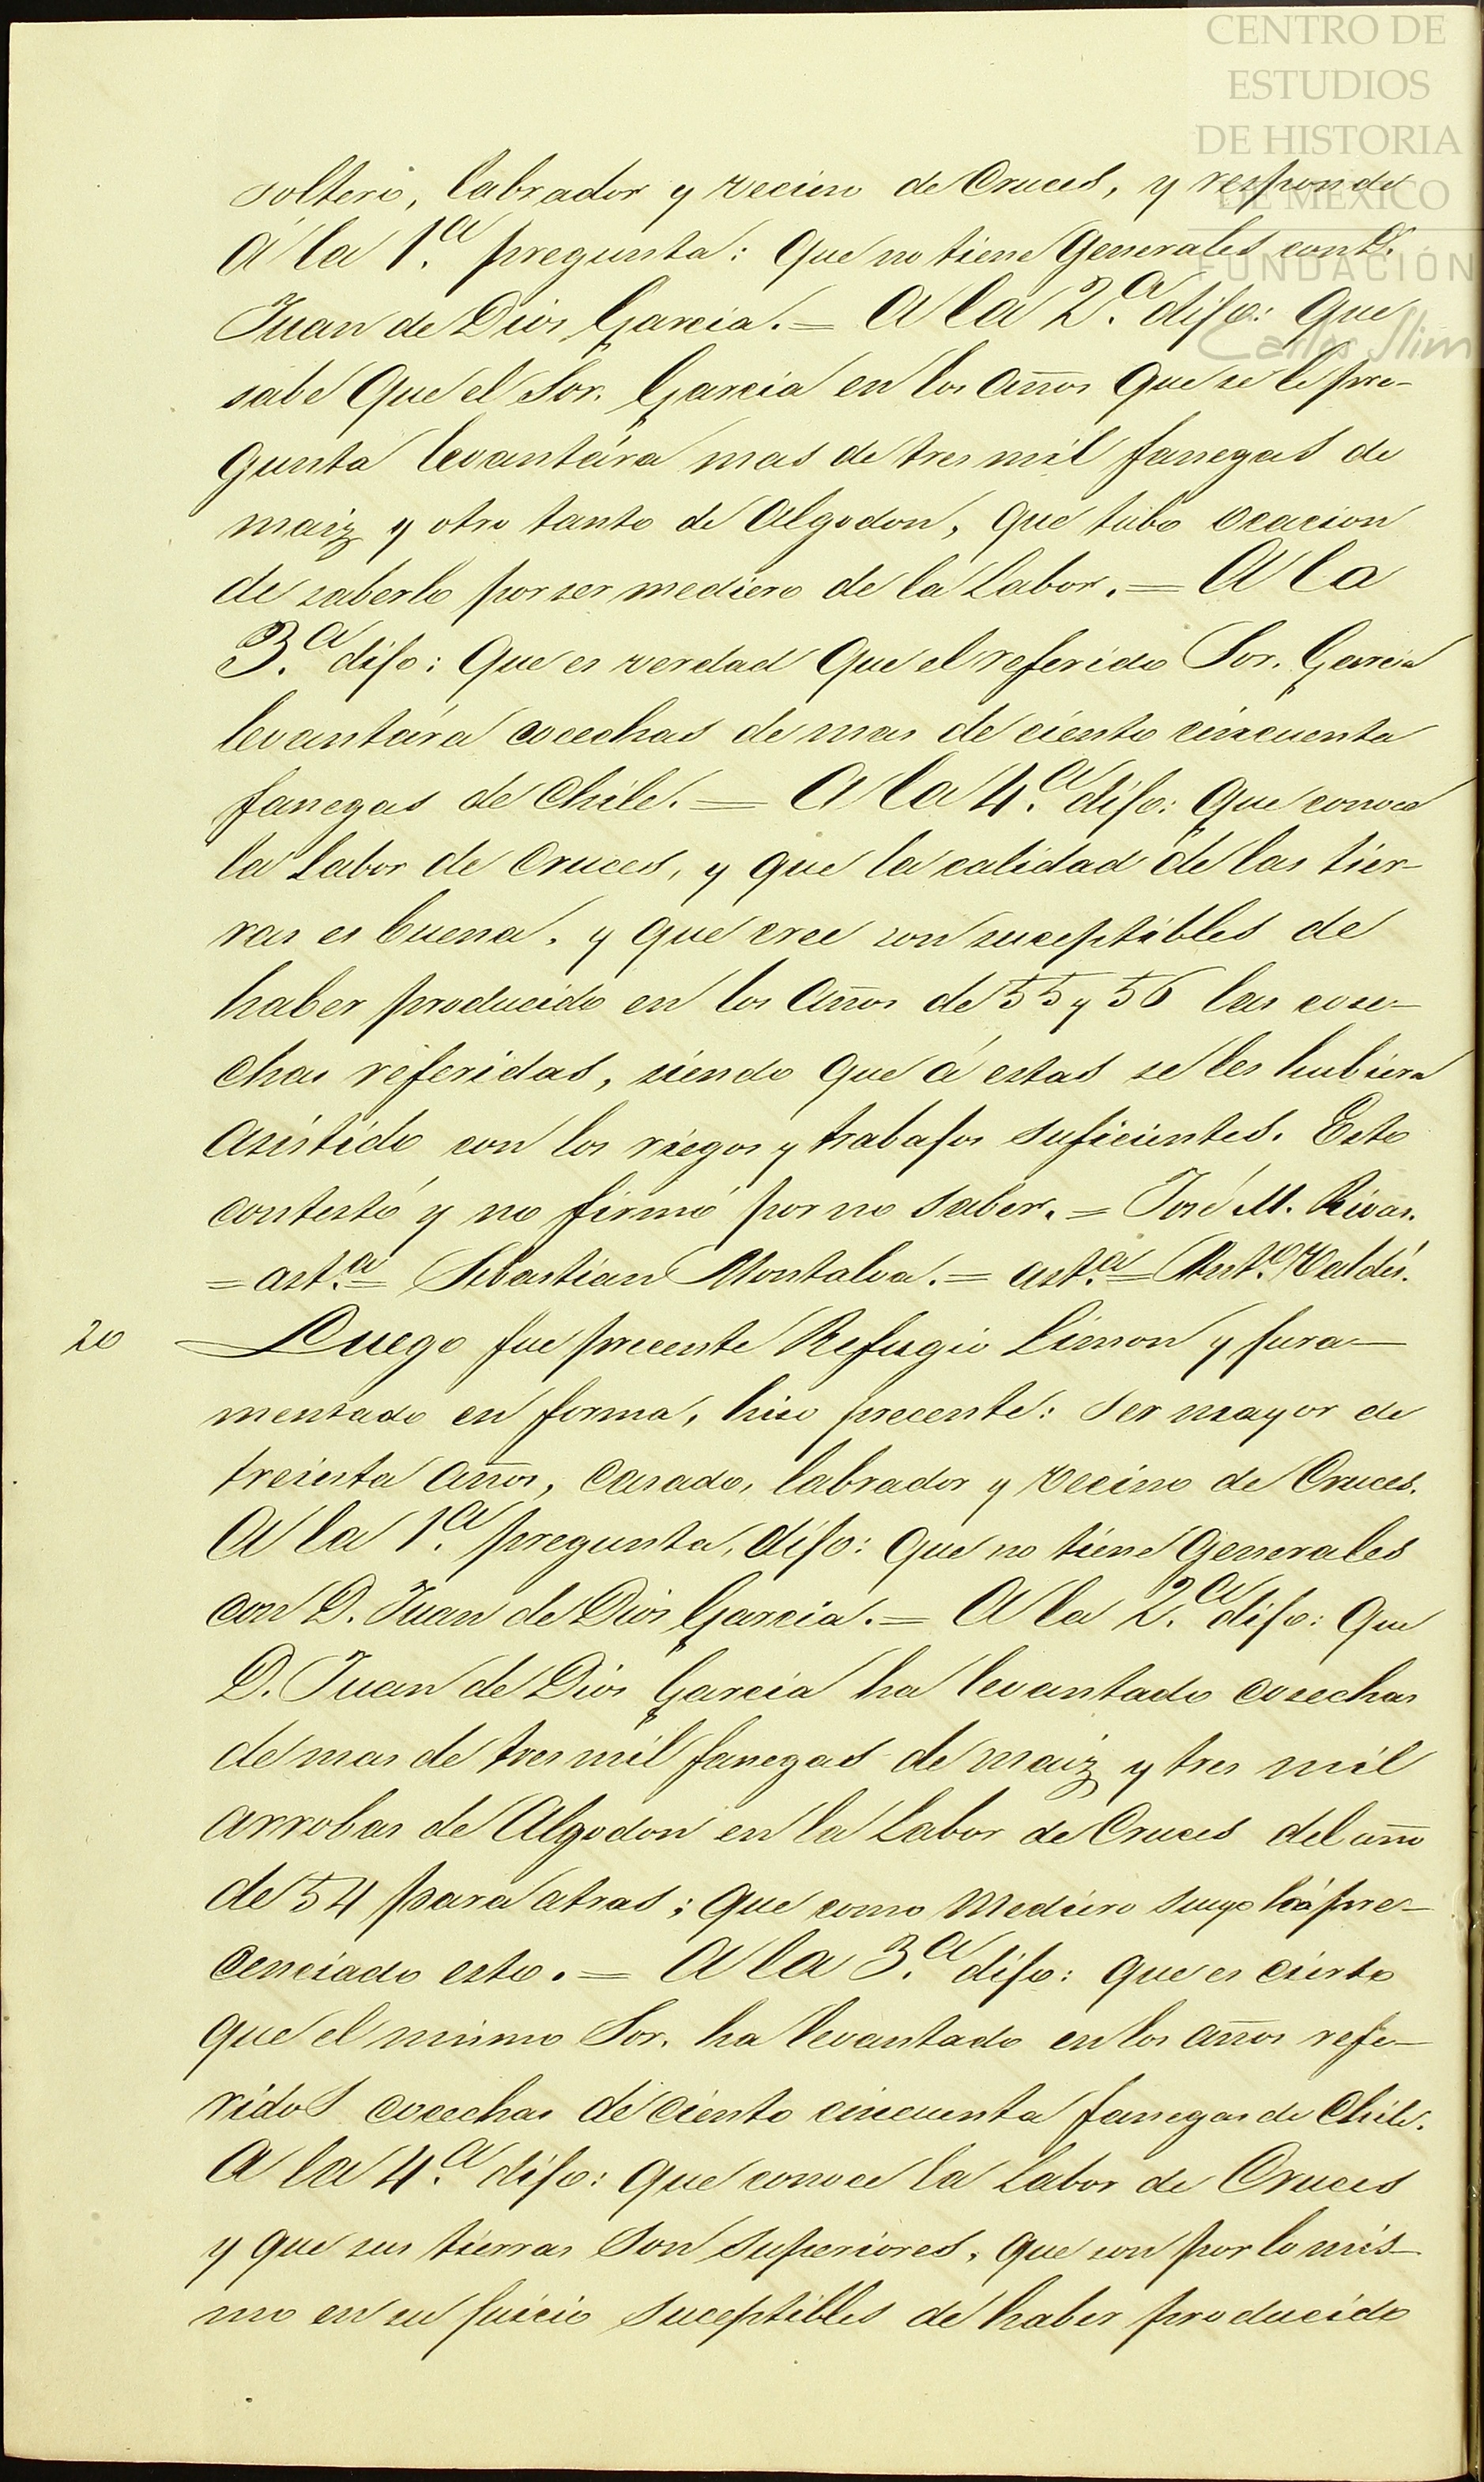 CENTRO DE
ESTUDIOS
DE HISTORIA
DE MÉXICO
FUNDACIÓN
Carlos Slim
soltero, labrador y vecino de Cruces, y responde
á la 1.ª pregunta: que no tiene generales con D.
Juan de Dios Garcia. = A la 2.ª dijo: que
sabe que el Sor. Garcia en los años que se le pre-
gunta levantára mas de tres mil fanegas de
maiz y otro tanto de Algodon, que tubo ocacion
de saberlo por ser mediero de la Labor. = A la
3.ª dijo: que es verdad que el referido Sor. Garcia
levantára cocechas de mas de ciento cincuenta
fanegas de chile. = A la 4.ª dijo: que conoce
la Labor de Cruces, y que la calidad de las tier-
ras es buena, y que cree son suceptibles de
haber producido en los años de 55 y 56 las cose-
chas referidas, siendo que á estas se les hubiera
asistido con los riegos y trabajos suficientes. Esto
contestó y no firmó por no saber. = José M. Rivas.
= ast.ª = Sebastian Montalva. = ast.ª = Ant.º Valdés.
20 Luego fue precente Refugio Limon y jura-
mentado en forma, hiso precente: ser mayor de
treinta años, casado, labrador y vecino de Cruces.
A la 1.ª pregunta, dijo: que no tiene generales
con D. Juan de Dios Garcia. = A la 2.ª dijo: que
D. Juan de Dios Garcia ha levantado cosechas
de mas de tres mil fanegas de maiz y tres mil
arrobas de Algodon en la Labor de Cruces del año
de 54 para atras; que como Mediero suyo há pre-
cenciado esto. = A la 3.ª dijo: que es cierto
que el mismo Sor. ha levantado en los años refe-
ridos cocechas de ciento cincuenta fanegas de Chile.
A la 4.ª dijo: que conoce la Labor de Cruces
y que sus tierras son superiores, que son por lo mis-
mo en su juicio suceptibles de haber producido